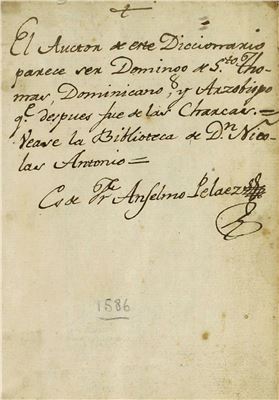 El Auctor de este Diccionario
parece ser Domingo de S.to Tho-
mas, Dominicano, y Arzobispo
q.e despues fue de las Charcas.=
Vease la Biblioteca de D.n Nico-
las Antonio=
Es de Fr Anselmo Pelaez
1586